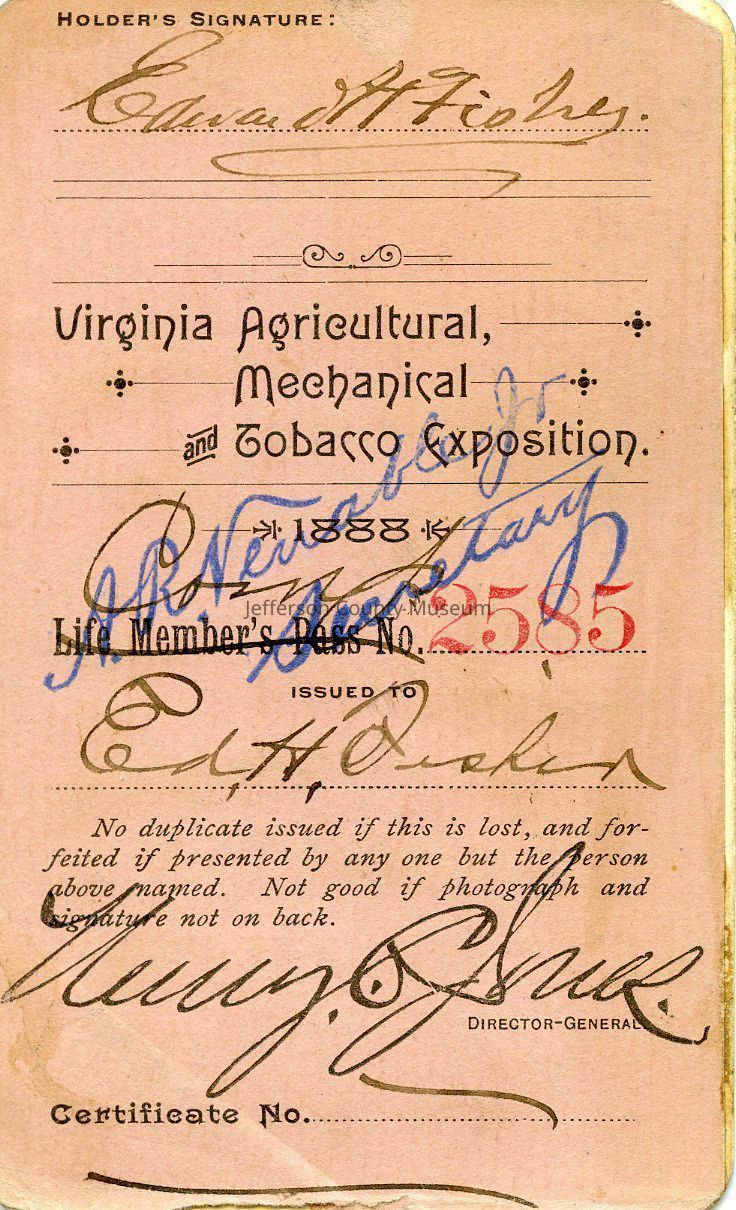 HOLDER'S SIGNATURE:
Edward H Fisher.
Virginia Agricultural,
Mechanical
and Tobacco Exposition.
1888
A. R. Venable Jr
Secretary
Jefferson County Museum
Life Member's Pass No. 2585
ISSUED TO
Ed, H, Fisher
No duplicate issued if this is lost, and for-
feited if presented by any one but the person
above named. Not good if photograph and
signature not on back.
DIRECTOR-GENERAL.
Certificate No.